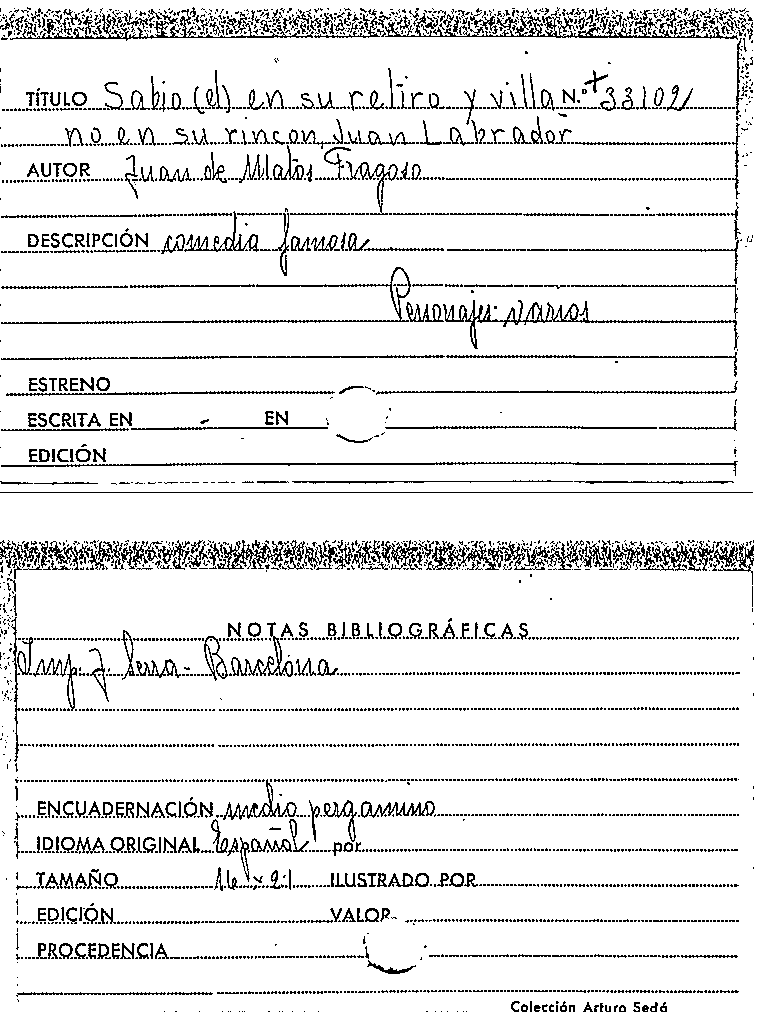 TÍTULO Sabio (el) en su retiro y villa N.º +33102
no en su rincon, Juan Labrador
AUTOR Juan de Matos Fragoso
DESCRIPCIÓN comedia famosa
Personajes: varios
ESTRENO
ESCRITA EN - EN
EDICIÓN
NOTAS BIBLIOGRÁFICAS
Imp. J. Serra - Barcelona
ENCUADERNACIÓN medio pergamino
IDIOMA ORIGINAL Español por
TAMAÑO 16 x 21 ILUSTRADO POR
EDICIÓN VALOR
PROCEDENCIA
Colección Arturo Sedó